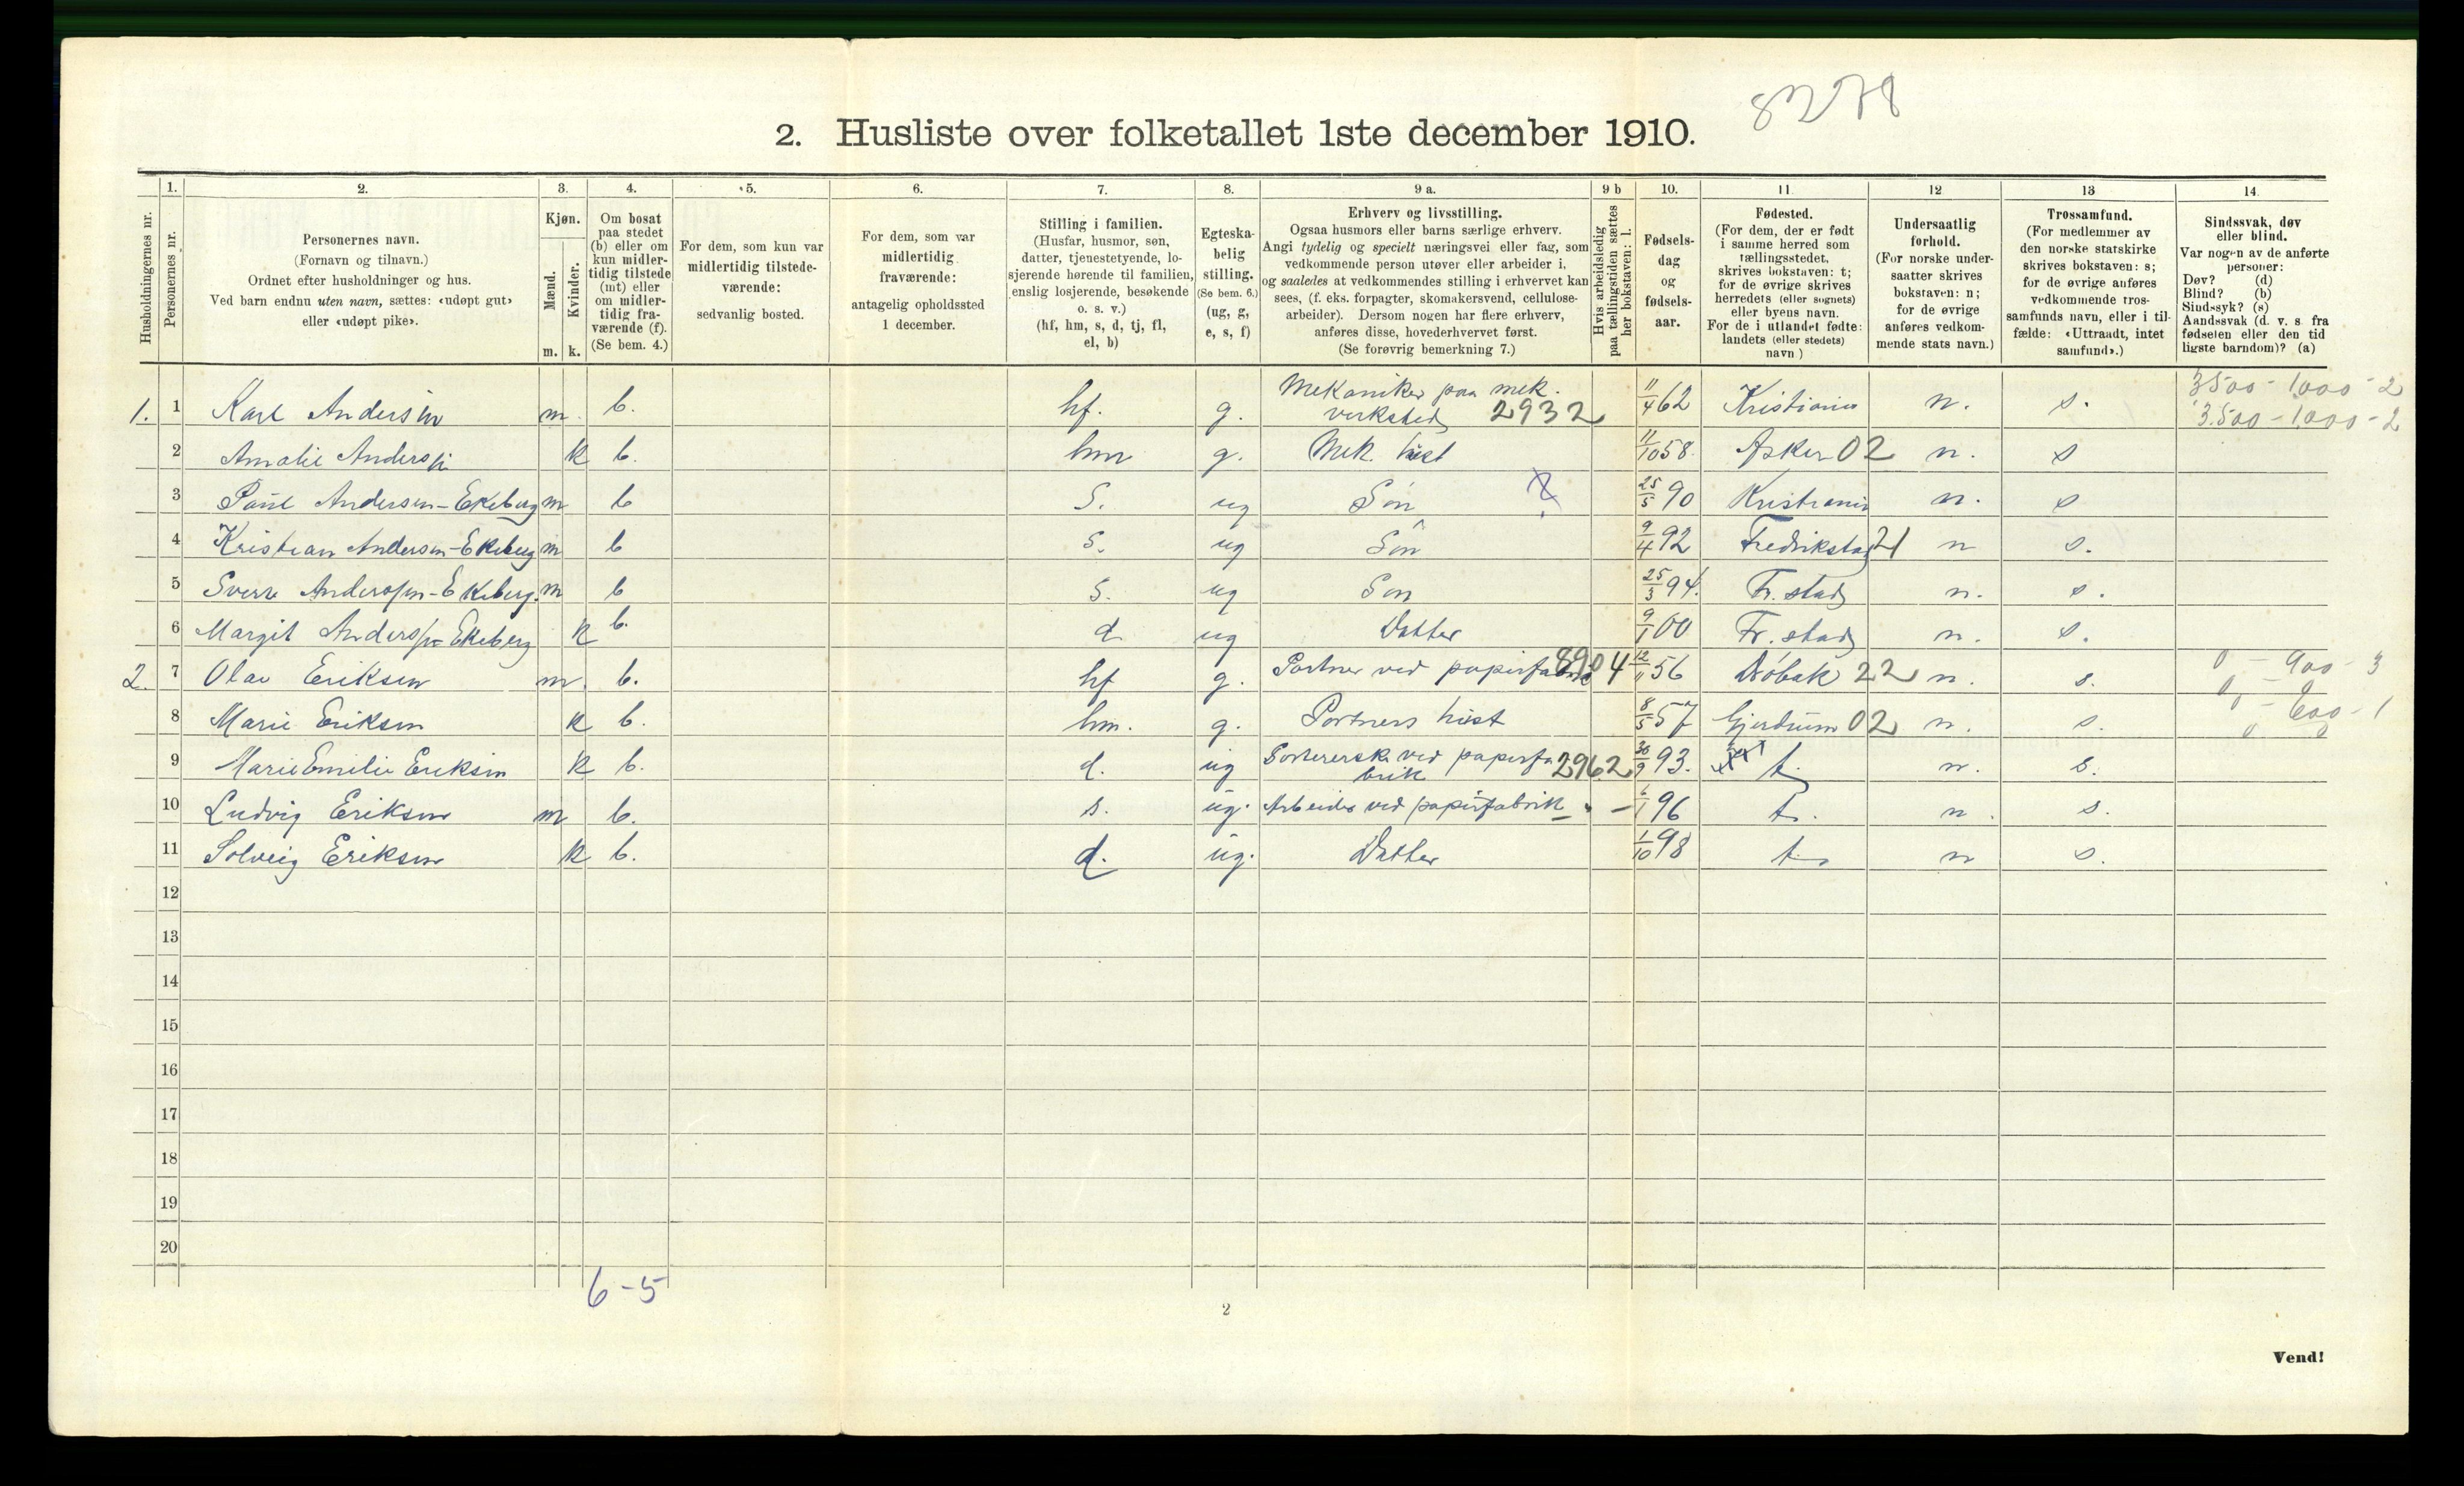 8278
2. Husliste over folketallet 1ste december 1910.
Husholdningernes nr.
1. Personernes nr.
2. Personernes navn.
(Fornavn og tilnavn.)
Ordnet efter husholdninger og hus.
Ved barn endnu uten navn, sættes: «udøpt gut»
eller «udøpt pike».
3. Kjøn.
Mænd. Kvinder.
m. k.
4. Om bosat
paa stedet
(b) eller om
kun midler-
tidig tilstede
(mt) eller
om midler-
tidig fra-
værende (f).
(Se bem. 4.)
5. For dem, som kun var
midlertidig tilstede-
værende:
sedvanlig bosted.
6. For dem, som var
midlertidig
fraværende:
antagelig opholdssted
1 december.
7. Stilling i familien.
(Husfar, husmor, søn,
datter, tjenestetyende, lo-
sjerende hørende til familien,
enslig losjerende, besøkende
o. s. v.)
(hf, hm, s, d, tj, fl,
el, b)
8. Egteska-
belig
stilling.
(Se bem. 6.)
(ug, g,
e, s, f)
9 a. Erhverv og livsstilling.
Ogsaa husmors eller barns særlige erhverv.
Angi tydelig og specielt næringsvei eller fag, som
vedkommende person utøver eller arbeider i,
og saaledes at vedkommendes stilling i erhvervet kan
sees, (f. eks. forpagter, skomakersvend, cellulose-
arbeider). Dersom nogen har flere erhverv,
anføres disse, hovederhvervet først.
(Se forøvrig bemerkning 7.)
9 b Hvis arbeidsledig
paa tællingstiden sættes
her bokstaven: l.
10. Fødsels-
dag
og
fødsels-
aar.
11. Fødested.
(For dem, der er født
i samme herred som
tællingsstedet,
skrives bokstaven: t;
for de øvrige skrives
herredets (eller sognets)
eller byens navn.
For de i utlandet fødte:
landets (eller stedets)
navn)
12 Undersaatlig
forhold.
(For norske under-
saatter skrives
bokstaven: n;
for de øvrige
anføres vedkom-
mende stats navn.)
13 Trossamfund.
(For medlemmer av
den norske statskirke
skrives bokstaven: s;
for de øvrige anføres
vedkommende tros-
samfunds navn, eller i til-
fælde: «Uttraadt, intet
samfund».)
14. Sindssvak, døv
eller blind.
Var nogen av de anførte
personer:
Døv? (d)
Blind? (b)
Sindssyk? (s)
Aandssvak (d. v. s. fra
fødselen eller den tid
ligste barndom)? (a)
1. 1 Karl Andersen m. b. hf. g. Mekaniker paa mek. verksted 2932 11/4 62 Kristiania n. s. 3500 - 1000 - 2
3.500 - 1000 - 2
2 Amalie Anderssen k b. hm g. Mek. hust 11/10 58. Asker 02 n. s
3 Paul Andersen-Ekeberg m b S. ug Søn 25/5 90 Kristiania n. s
4 Kristian Andersen-Ekeberg m b s. ug Søn 9/4 92 Fredrikstad 21 n s.
5 Sverre Anderssen-Ekeberg. m b s. ug Søn 25/3 94. Fr. stad n. s.
6 Margit Anderssen Ekeberg k b. d. ug Datter 9/1 00 Fr. stad n. s.
2. 7 Olav Eriksen m. b. hf g. Portner ved papirfabrik 8904 12/11 56 Drøbak 22 n. s. 0 - 900 - 3
8 Marie Eriksen k b. hm. g. Portners hust 8/5 57 Gjerdrum 02 n. s. 0 - 600 - 1
0 0
9 Marie Emilie Eriksen k b. d. ug Sorterersk. ved papirfabrik 2962 30/9 93. t. n. s.
10 Ludvig Eriksen m b. s. ug. Arbeider ved papirfabrik " - 6/1 96 t. n. s.
11 Solveig Eriksen k b. d. ug. Datter 1/10 98 t. n s.
12
13
14
15
16
17
18
19
20
6-5
2
Vend!